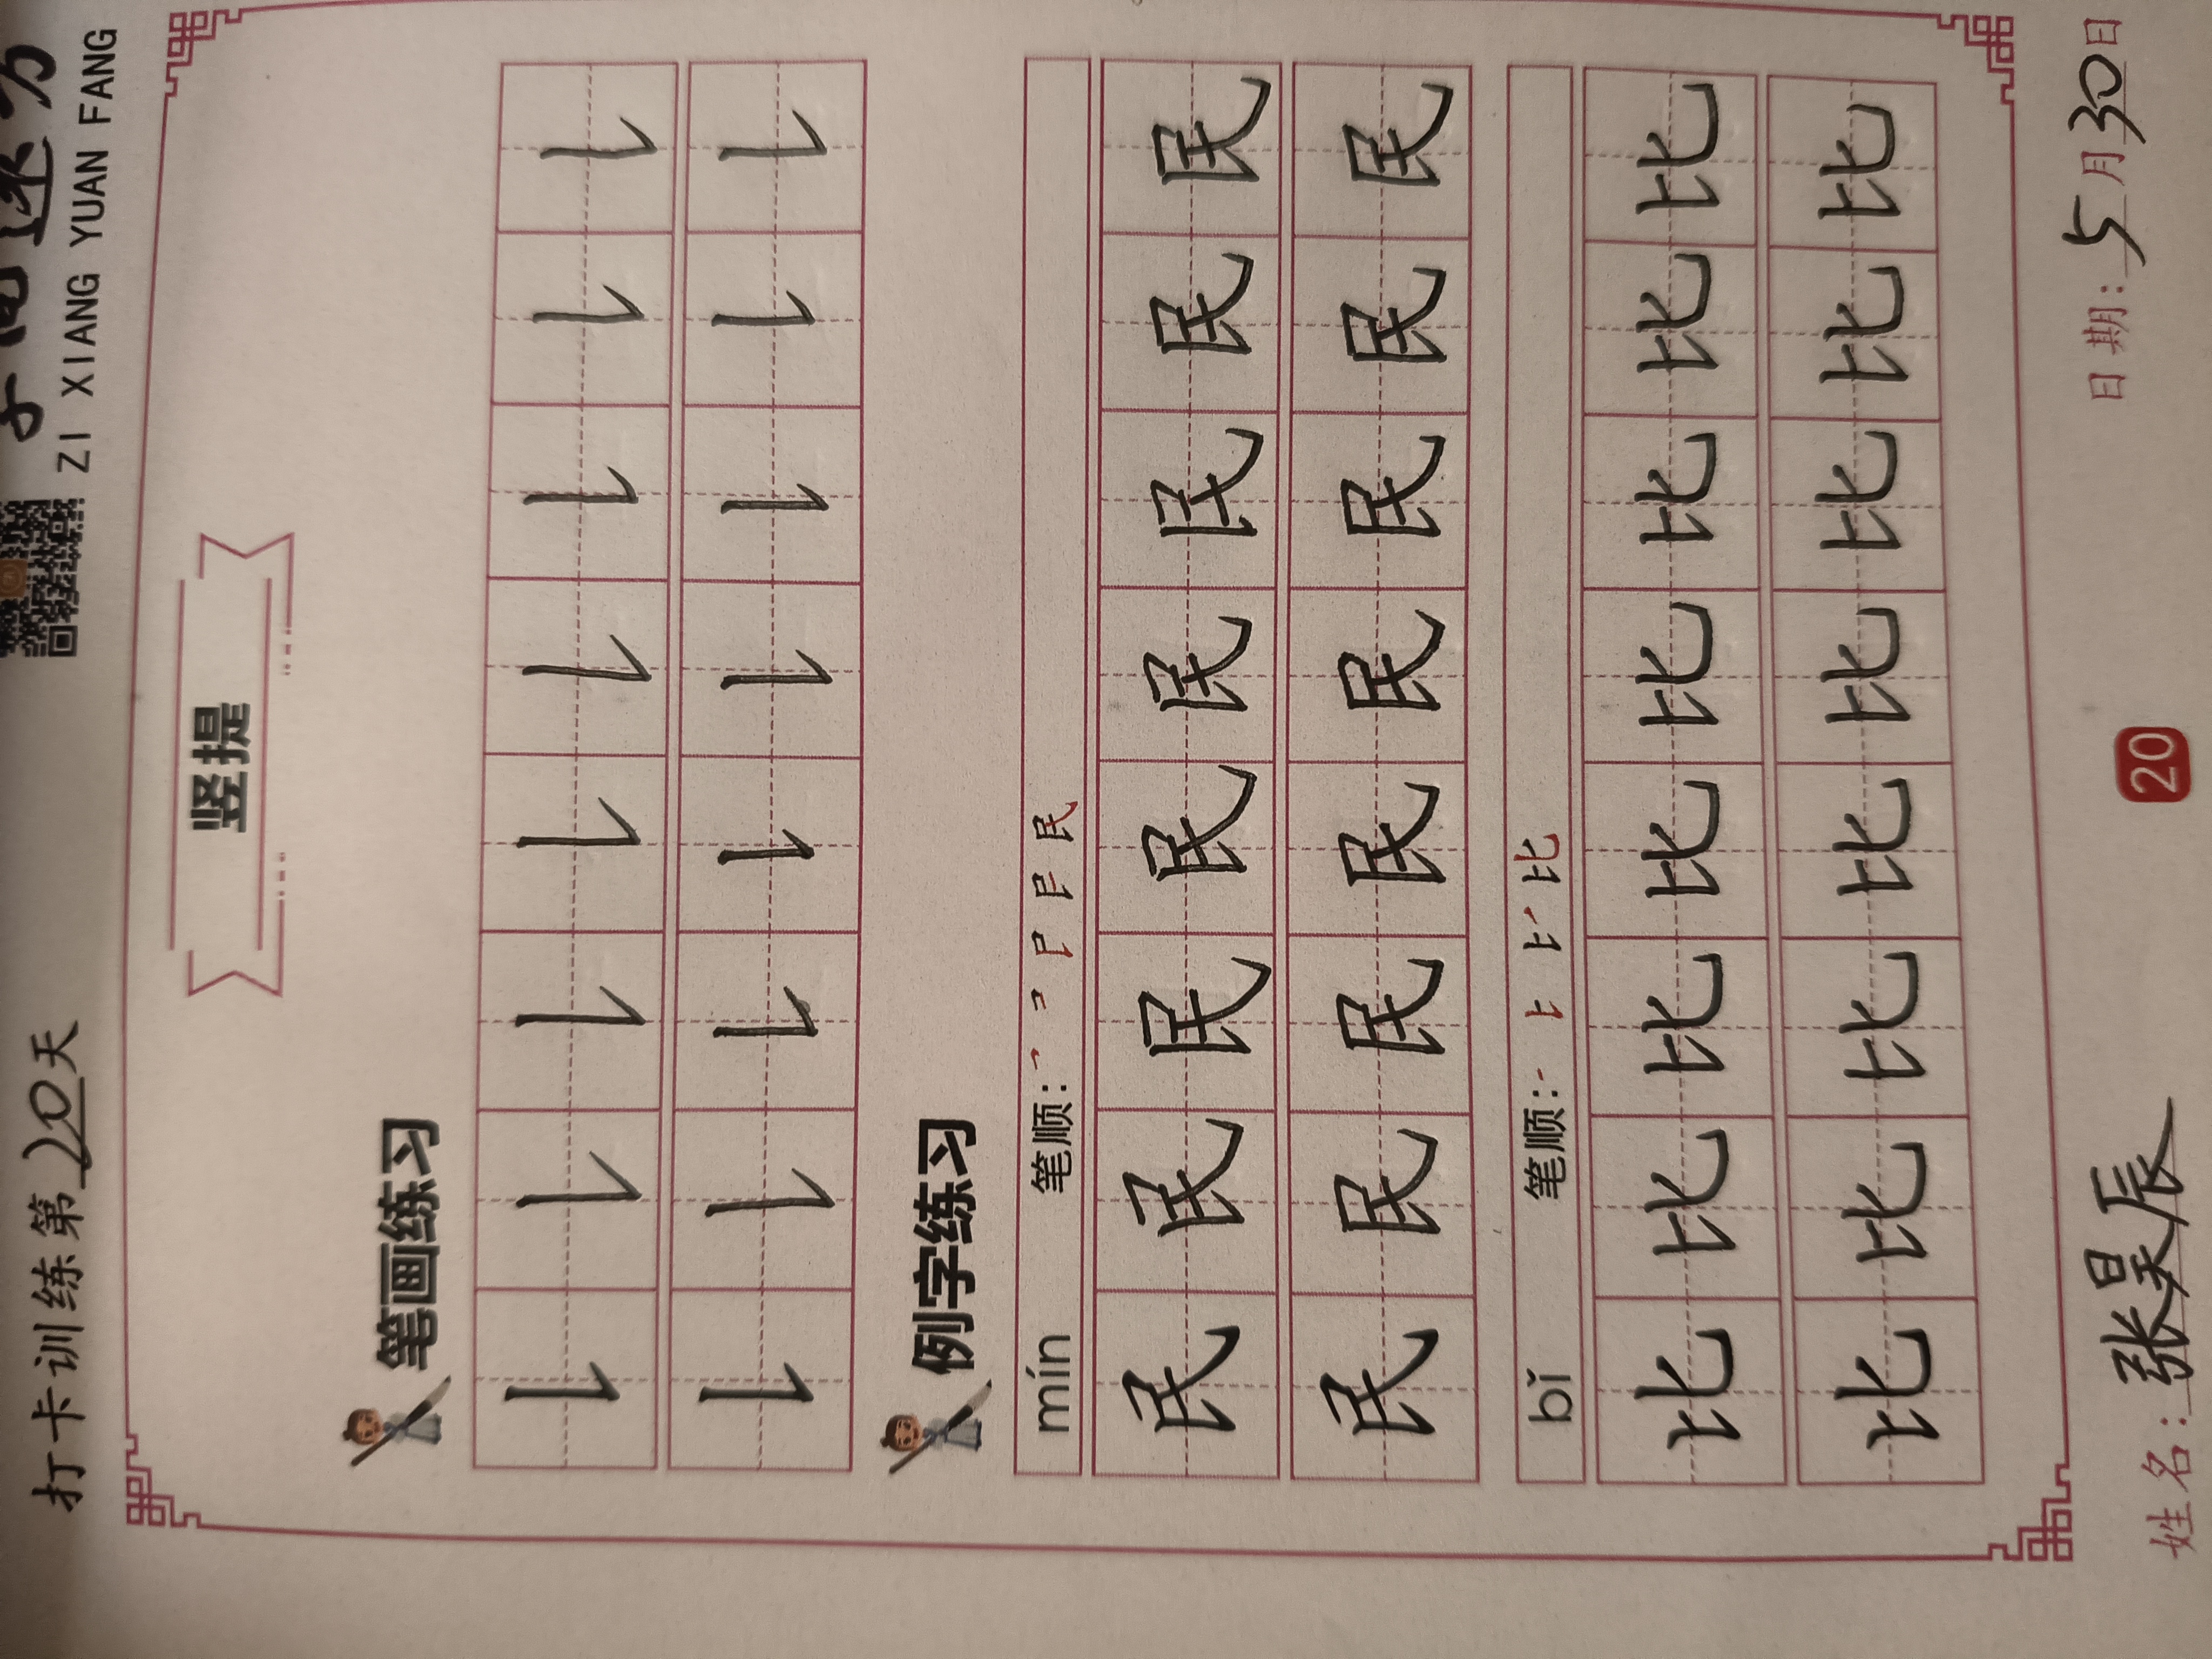 打卡训练第20天
ZI XIANG YUAN FANG
竖提
笔画练习
例字练习
mín 笔顺:
民民民民民民民民
民民民民民民民民
bǐ 笔顺:
比比比比比比比比
比比比比比比比比
姓名:张昊辰 20 日期:5月30日